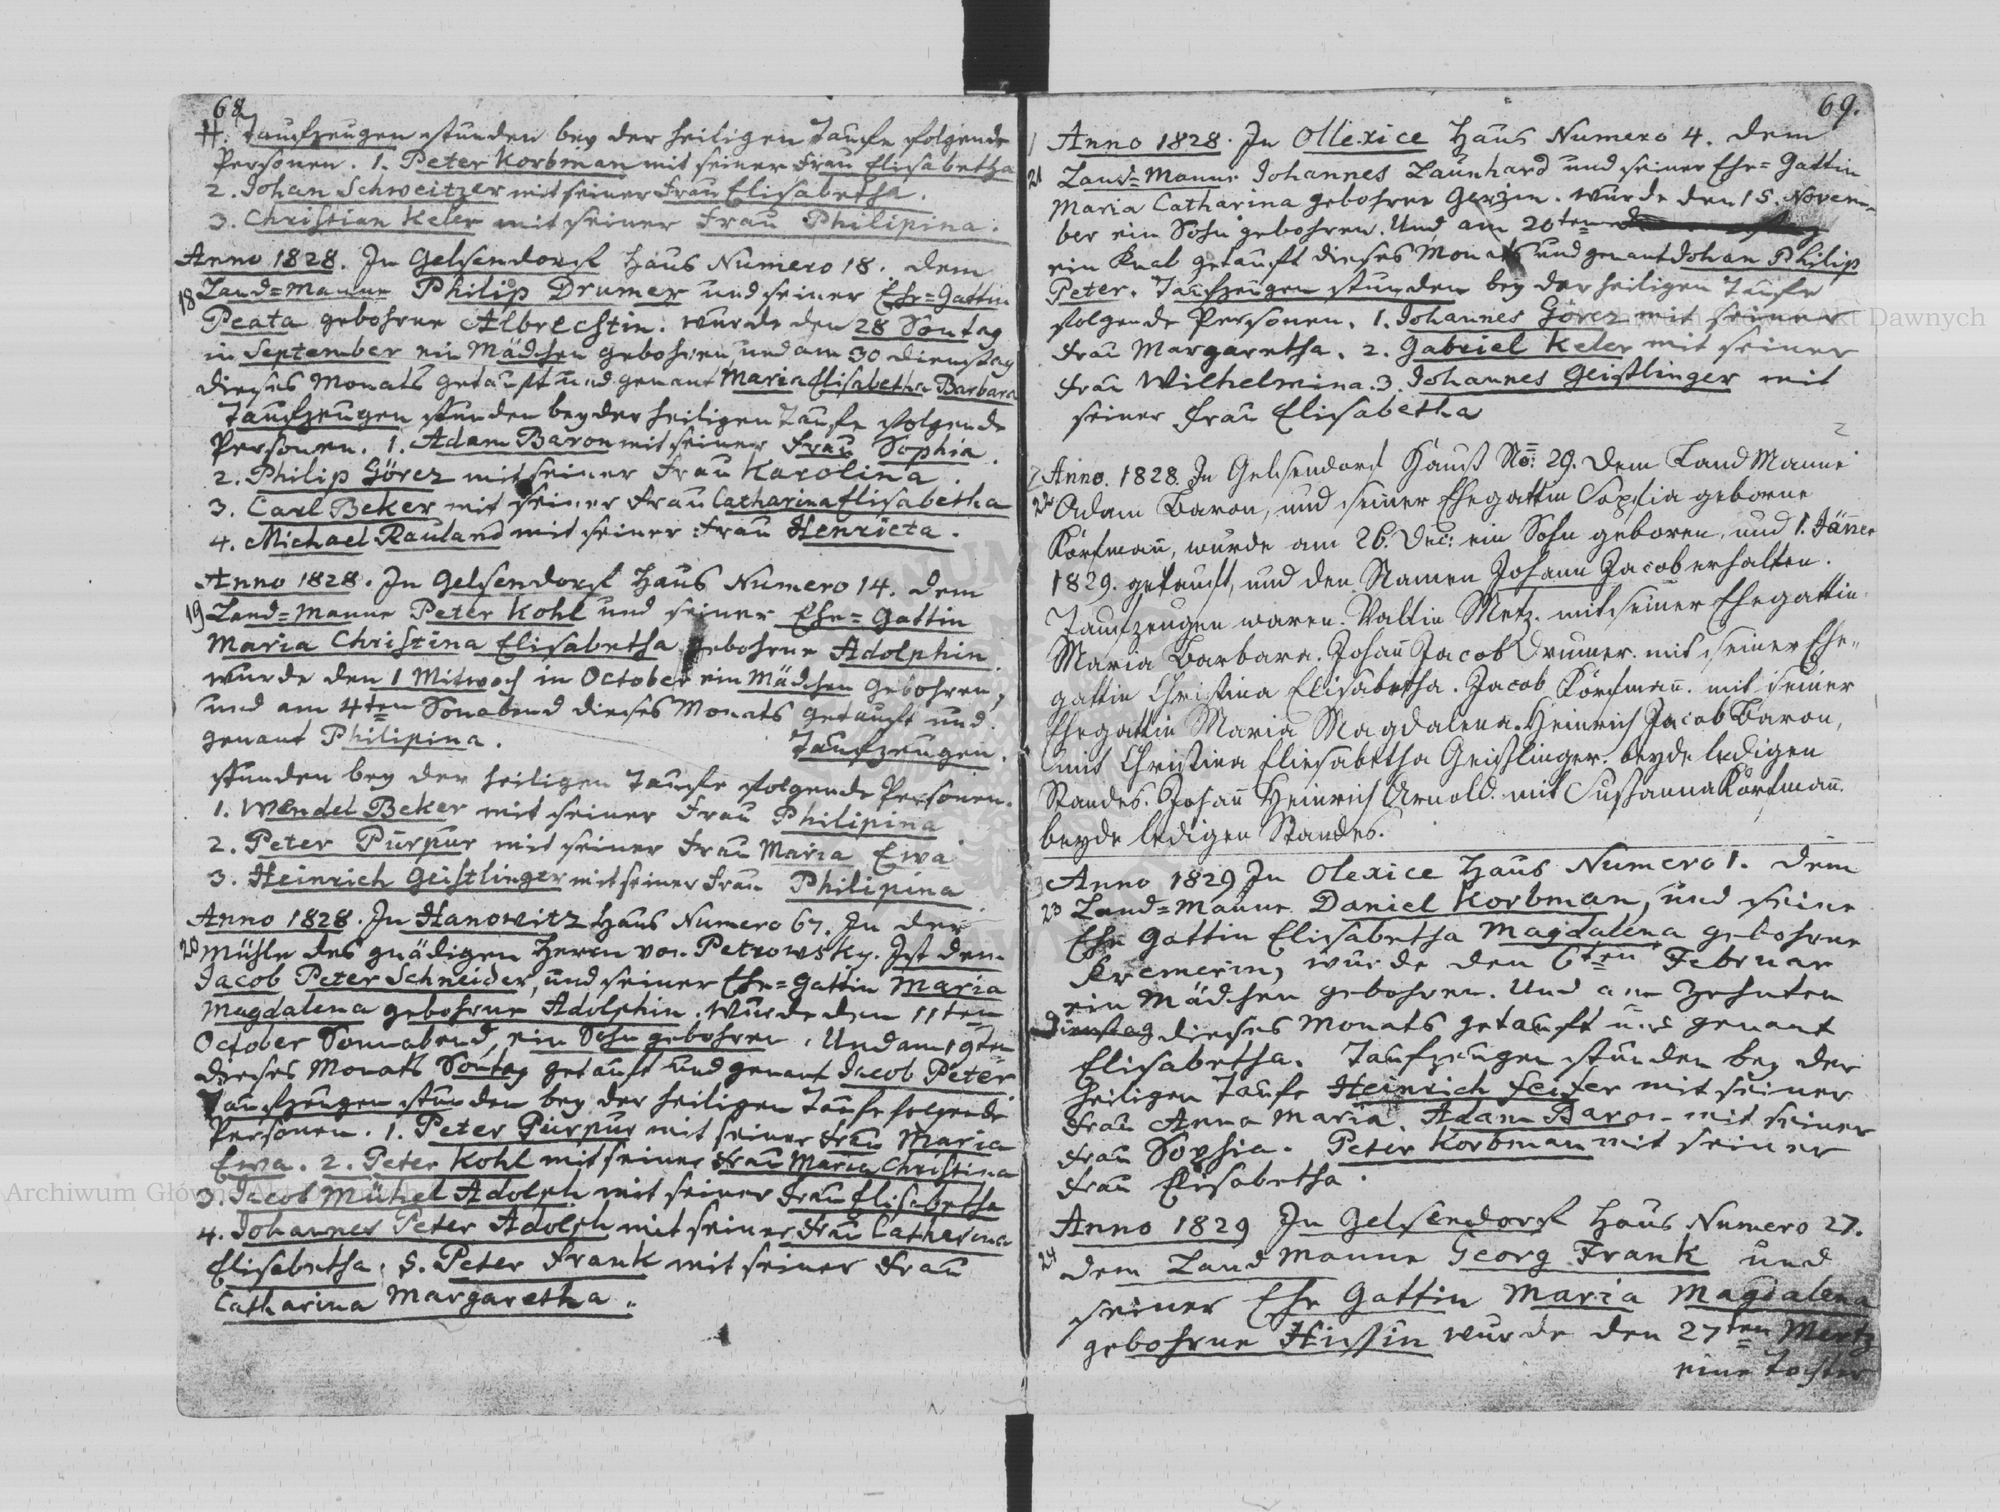 68
#. Taufzeugen stunden bey der heiligen Taufe folgende
Personen. 1. Peter Korbman mit seiner Frau Elisabetha
2. Johan Schweitzer mit seiner Frau Elisabetha.
3. Christian Keler mit seiner Frau Philipina.
Anno 1828. In Gelsendorf Haus Numero 18. dem
18 Land=Manne Philip Drumer und seiner Ehe=Gattin
Peata gebohrne Albrechtin. wurde den 28 Sontag
in September ein Mädchen gebohren und am 30 Dienstag
dieses Monats getauft und genant Maria Elisabetha Barbara
Taufzeugen stunden bey der heiligen Taufe folgende
Personen. 1. Adam Baron mit seiner Frau Sophia.
2. Philip Görez mit seiner Frau Karolina.
3. Carl Beker mit seiner Frau Catharina Elisabetha
4. Michael Rauland mit seiner Frau Henrieta.
Anno 1828. In Gelsendorf Haus Numero 14. dem
19 Land=Manne Peter Kohl und seiner Ehe=Gattin
Maria Christina Elisabetha gebohrne Adolphin.
wurde den 1 Mitwoch in October ein Mädchen gebohren,
und am 4ten Sonabend dieses Monats getauft und
genant Philipina. Taufzeugen.
stunden bey der heiligen Taufe folgende Personen.
1. Wendel Beker mit seiner Frau Philipina
2. Peter Purpur mit seiner Frau Maria Ewa
3. Heinrich Geistlinger mit seiner Frau Philipina
Anno 1828. In Hanowitz Haus Numero 67. In der
20 Mühle des gnädigen Herrn von Petrowsky. Ist dem
Jacob Peter Schneider, und seiner Ehe=Gattin Maria
Magdalena gebohrne Adolphin. Wurde den 11ten
October Sonnabend, ein Sohn gebohren. Und am 19ten
dieses Monats Sontag getauft und genant Jacob Peter
Taufzeugen stunden bey der heiligen Taufe folgende
Personen. 1. Peter Purpur mit seiner Frau Maria
Ewa. 2. Peter Kohl mit seiner Frau Maria Christina
3. Jacob Mühel Adolph mit seiner Frau Elisabetha
4. Johannes Peter Adolph mit seiner Frau Catharina
Elisabetha. 5. Peter Frank mit seiner Frau
Catharina Margaretha.
69.
Anno 1828. In Ollexice Haus Numero 4. dem
21 Land=Manne Johannes Launhard und seiner Ehe=Gattin
Maria Catharina gebohrne . wurde den 15. Novem=
ber ein Sohn gebohren. Und am 20ten
ein Knab getauft dieses Monats und genant Johan Philip
Peter. Taufzeugen stunden bey der heiligen Taufe
folgende Personen. 1. Johannes Görez mit seiner
Frau Margaretha. 2. Gabriel Keler mit seiner
Frau Wilhelmina. 3. Johannes Geistlinger mit
seiner Frau Elisabetha
2
Anno. 1828. In Gelsendorf Hauß No: 29. dem Land Manne
22 Adam Baron, und seiner Ehegattin Sophia geborne
Körfmañ, wurde am 26. Dec: ein Sohn geboren, und 1. Jäner
1829. getauft, und den Namen Johann Jacob erhalten.
Taufzeugen waren. Valtin Metz. mit seiner Ehegattin
Maria Barbara. Johañ Jacob Drumer. mit seiner Ehe=
gattin Christina Elisabetha. Jacob Körfmañ. mit seiner
Ehegattin Maria Magdalena. Heinrich Jacob Baron,
mit Christina Eliesabetha Geistlinger. beyde ledigen
Standes. Johañ Heinrich Arnold. mit Sußanna Körfmañ.
beyde ledigen Standes.
Anno 1829 In Olexice Haus Numero 1. dem
23 Land=Manne Daniel Korbman, und seine
Ehe Gattin Elisabetha Magdalena gebohrne
Kremerin, wurde den 6ten Februar
ein Mädchen gebohren. Und am zehnten
Dienstag dieses Monats getauft und genant
Elisabetha. Taufzeugen stunden bey der
heiligen Taufe Heinrich Feifer mit seiner
Frau Anna Maria. Adam Baron mit seiner
Frau Sophia. Peter Korbman mit seiner
Frau Elisabetha.
Anno 1829 In Gelsendorf Haus Numero 27.
24 dem Land Manne Georg Frank und
seiner Ehe Gattin Maria Magdalena
gebohrne Hissin wurde den 27ten Mertz
eine Tochter
Archiwum Główne Akt Dawnych
Archiwum Główne Akt Dawnych